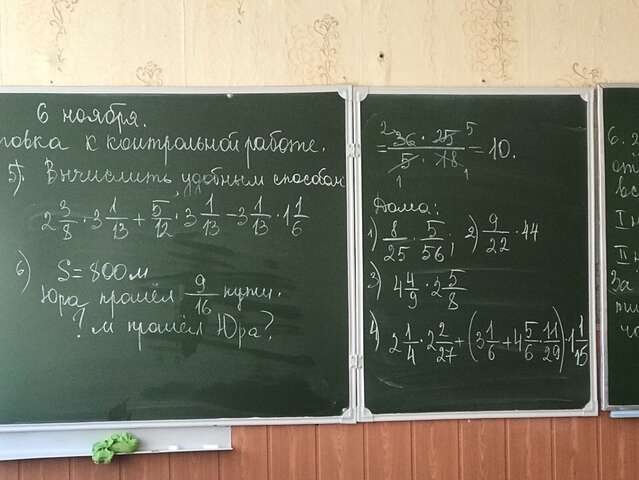 6 ноября.
товка к контрольной работе.
5). Вычислить удобным способом
2 3/8 · 3 1/13 + 5/12 · 3 1/13 − 3 1/13 · 1 1/6
6) S = 800 м
Юра прошёл 9/16 пути.
? м прошёл Юра?
= 36 · 25 / 5 · 18 = 10.
2 5
1 1
Дома:
1) 8/25 · 5/56; 2) 9/22 · 44
3) 4 4/9 · 2 5/8
4) 2 1/4 · 2 2/27 + (3 1/6 + 4 5/6 · 11/29) · 1 1/15
6. 2
от
вс
I н
II н
За
пи
че